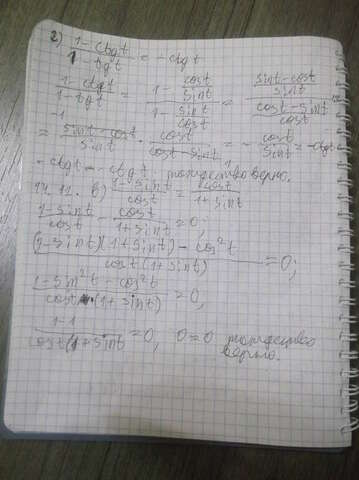 г) (1-ctgt)/(1-tgt) = -ctgt
(1-ctgt)/(1-tgt) = (1-cost/sint)/(1-sint/cost) = ((sint-cost)/sint)/((cost-sint)/cost) =
= (sint-cost)/sint · cost/(cost-sint) = -cost/sint = -ctgt
-ctgt = -ctgt, тождество верно.
14.11. в) (1-sint)/cost = cost/(1+sint)
(1-sint)/cost - cost/(1+sint) = 0;
((1-sint)(1+sint)-cos²t)/(cost(1+sint)) = 0;
(1-sin²t-cos²t)/(cost(1+sint)) = 0;
(1-1)/(cost(1+sint) = 0, 0=0 тождество
верно.